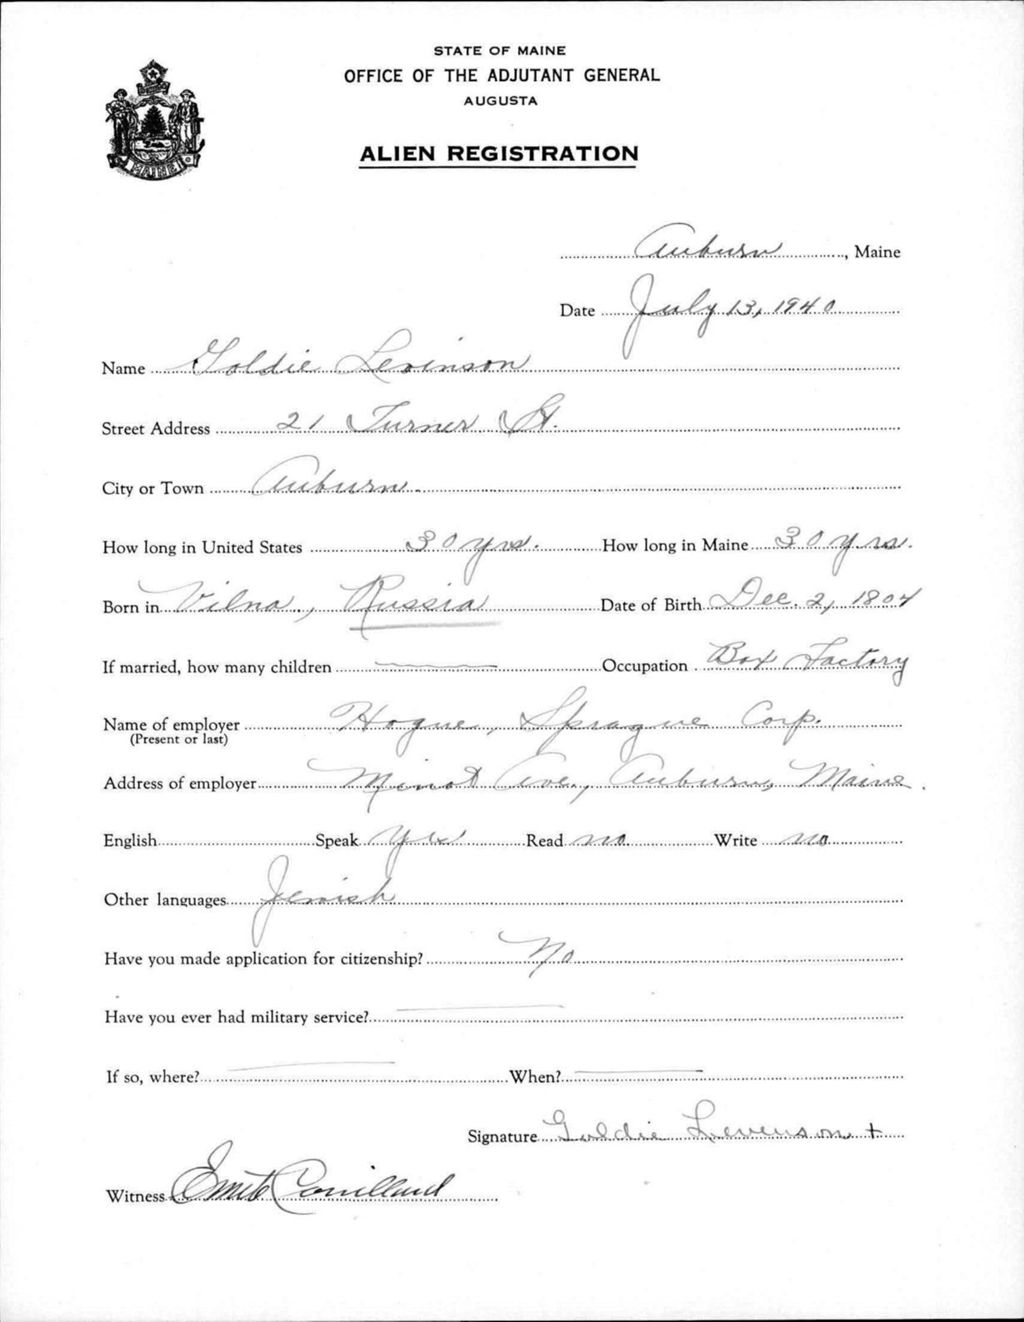 STATE OF MAINE
OFFICE OF THE ADJUTANT GENERAL
AUGUSTA
ALIEN REGISTRATION
MAINE
Auburn, Maine
Date July 13, 1940
Name Goldie Levinson
Street Address 21 Turner St.
City or Town Auburn
How long in United States 30 yrs. How long in Maine 30 yrs.
Born in Vilna, Russia Date of Birth Dec. 2, 1804
If married, how many children Occupation Box Factory
Name of employer Hogue, Sprague Corp.
(Present or last)
Address of employer Minot Ave., Auburn, Maine.
English Speak Yes Read no Write no
Other languages Jewish
Have you made application for citizenship? No
Have you ever had military service?
If so, where? When?
Signature Goldie Levenson +
Witness